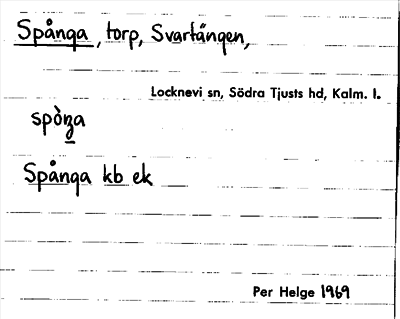 Spånga, torp, Svartängen,
Locknevi sn, Södra Tjusts hd, Kalm. l.
spòŋa
Spånga kb ek
Per Helge 1969